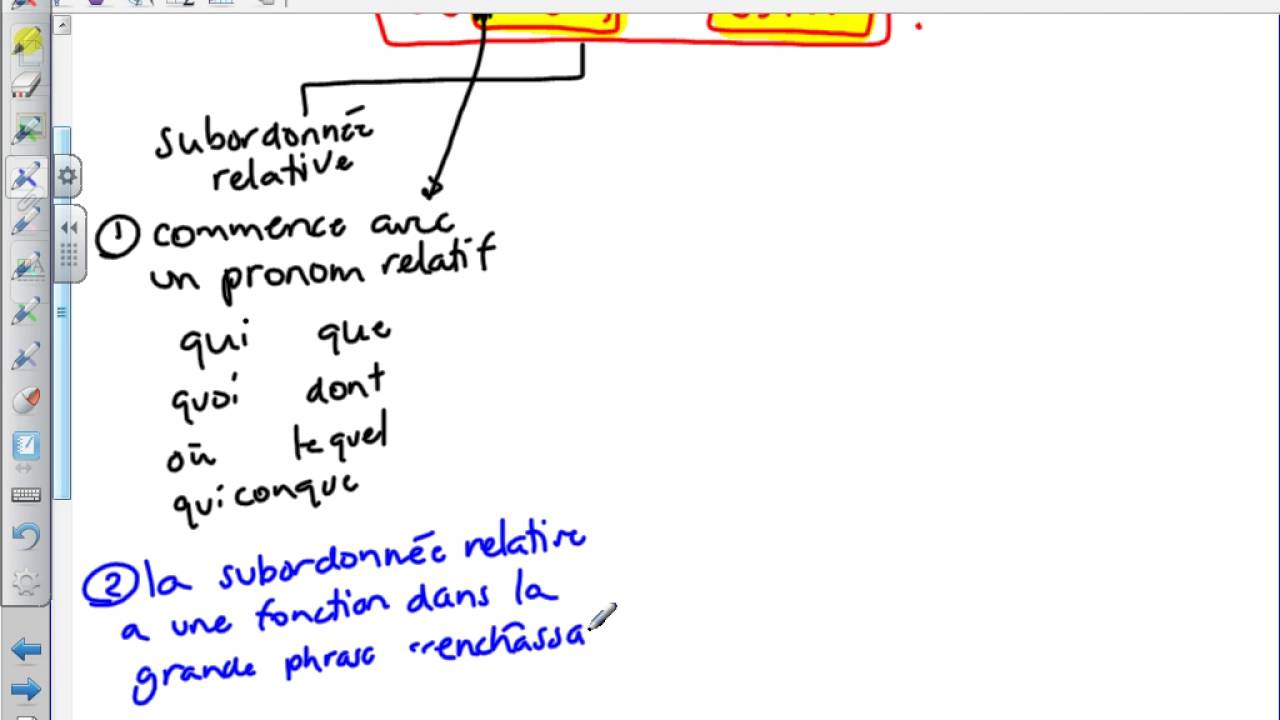 subordonnée
relative
① commence avec
un pronom relatif
qui que
quoi dont
où lequel
quiconque
② la subordonnée relative
a une fonction dans la
grande phrase "enchâssa